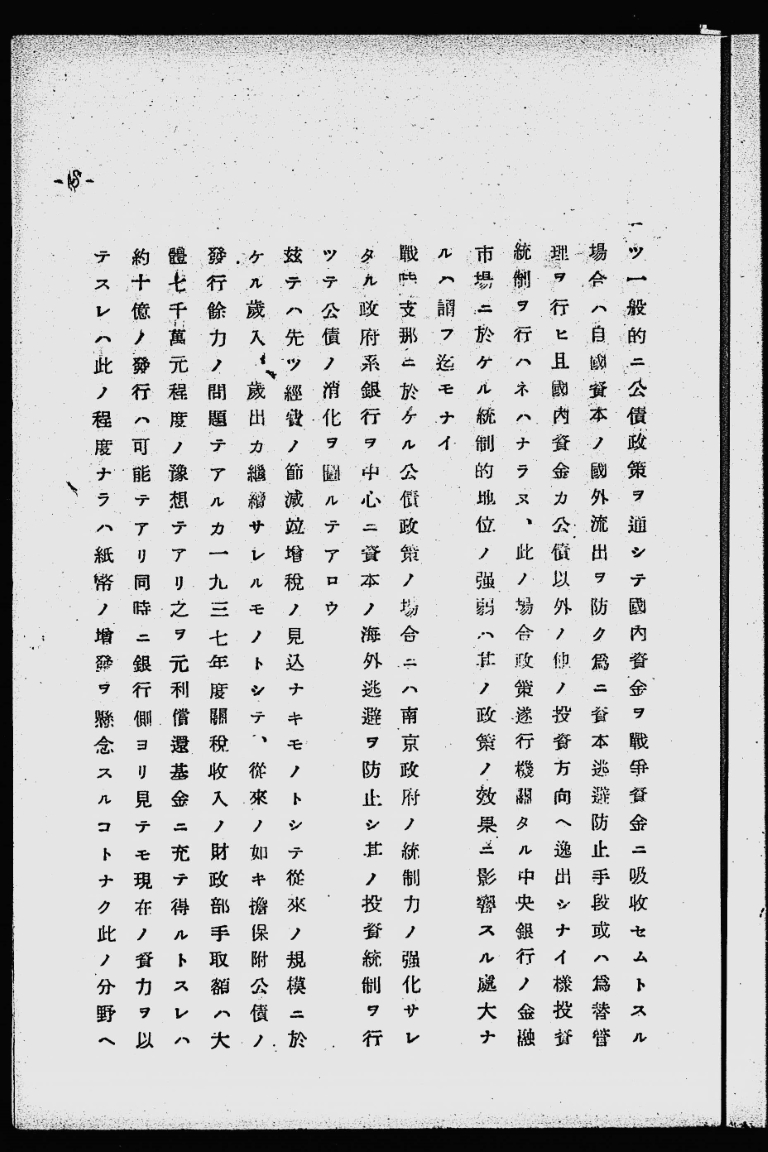 一ツ一般的ニ公債政策ヲ通シテ國內資金ヲ戰爭資金ニ吸收セムトスル
場合ハ自國資本ノ國外流出ヲ防ク爲ニ資本逃避防止手段或ハ爲替管
理ヲ行ヒ且國內資金カ公債以外ノ他ノ投資方向ヘ逸出シナイ樣投資
統制ヲ行ハネハナラヌ、此ノ場合政策遂行機關タル中央銀行ノ金融
市場ニ於ケル統制的地位ノ强弱ハ其ノ政策ノ效果ニ影響スル處大ナ
ルハ謂フ迄モナイ
戰時支那ニ於ケル公債政策ノ場合ニハ南京政府ノ統制力ノ强化サレ
タル政府系銀行ヲ中心ニ資本ノ海外逃避ヲ防止シ其ノ投資統制ヲ行
ツテ公債ノ消化ヲ圖ルテアロウ
玆テハ先ツ經費ノ節減竝增稅ノ見込ナキモノトシテ從來ノ規模ニ於
ケル歲入、歲出カ繼續サレルモノトシテ、從來ノ如キ擔保附公債ノ
發行餘力ノ問題テアルカ一九三七年度關稅收入ノ財政部手取額ハ大
體七千萬元程度ノ豫想テアリ之ヲ元利償還基金ニ充テ得ルトスレハ
約十億ノ發行ハ可能テアリ同時ニ銀行側ヨリ見テモ現在ノ資力ヲ以
テスレハ此ノ程度ナラハ紙幣ノ增發ヲ懸念スルコトナク此ノ分野ヘ